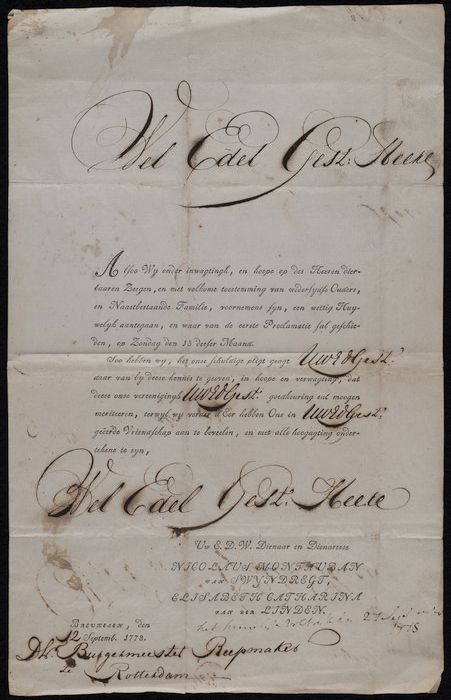 Wel Edel Gest: Heere
Alsoo Wy onder inwagtingh, en hoope op des Heeren dier-
baaren Zeegen, en met volkome toestemming van wederzydse Ouders,
en Naastbestaande Familie, voornemens syn, een wettig Huy-
welyk aantegaan, en waar van de eerste Proclamatie sal geschie-
den, op Zondag den 13 deeser Maand.
Soo hebben wy, het onse schuldige pligt geagt UWEdGest:
daar van by deese kennis te geeven, in hoope en verwagting, dat
deese onse vereenigingh UWEdGest: goedkeuring sal moogen
meriteeren, terwyl wy verder d'Eer hebben Ons in UWEdGest:
geëerde Vriendschap aan te beveelen, en met alle hoogagting onder-
tekene te zyn,
Wel Edel Gestr: Heere
Uw E. D. W. Dienaar en Dienaresse
NICOLAUS MONTHUBAN
VAN SWYNDREGT,
ELISABETH CATHARINA
VAN DER LINDEN.
1778
BREUNESEN, den
12 Septemb. 1778.
Dhr Burgermeester Reepmaker
te Rotterdam